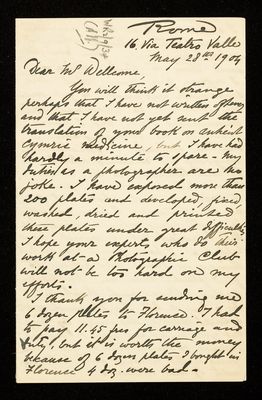 Rome
16 Via Teatro Valle
May 28th 1904
Dear Mr Wellcome,
You will think it strange
perhaps that I have not written oftener,
and that I have not yet sent the
translation of your book on ancient
cymric medicine, but I have had
hardly a minute to spare - my
duties as a photographer are no
joke. I have exposed more than
200 plates and developed, fixed,
washed, dried and printed
these plates under great difficulty.
I hope your experts, who do their
work at a Photographic Club
will not be too hard on my
efforts.
I thank you for sending me
6 dozen plates to Florence. I had
to pay 11.45 for carriage and
duty, but it is worth the money
because of 6 dozen plates I bought in
Florence 4 doz. were bad -